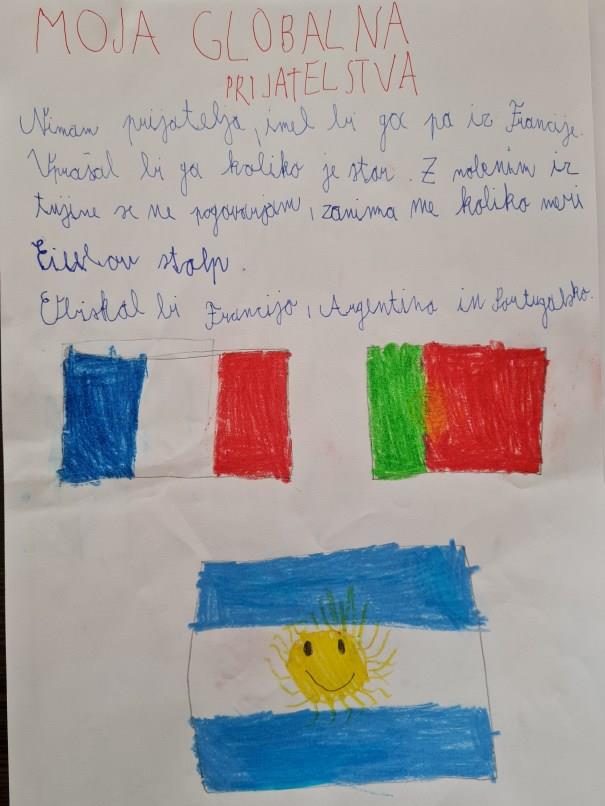 MOJA GLOBALNA
PRIJATELSTVA
Nimam prijatelja, imel bi ga pa iz Francije.
Vprašal bi ga koliko je star. Z nobenim iz
tujine se ne pogovarjam, zanima me koliko meri
stolp.
Obiskal bi Francijo, Argentino in Portugalsko.